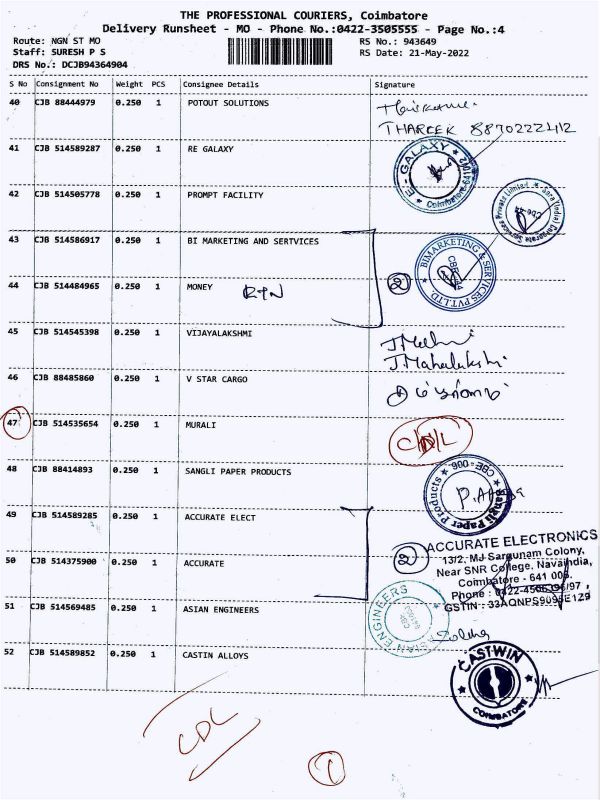 THE PROFESSIONAL COURIERS, Coimbatore
Delivery Runsheet - MO - Phone No.:0422-3505555 - Page No.:4
Route: NGN ST MO RS No.: 943649
Staff: SURESH P S RS Date: 21-May-2022
DRS No.: DCJB94364904
S No Consignment No Weight PCS Consignee Details Signature
40 CJB 88444979 0.250 1 POTOUT SOLUTIONS
THAREEK 8870222412
41 CJB 514589287 0.250 1 RE GALAXY
E-GALAXY
Coimbatore
42 CJB 514505778 0.250 1 PROMPT FACILITY
Cbe-44
43 CJB 514586917 0.250 1 BI MARKETING AND SERTVICES
BIMARKETING & SERVICES PVT.LTD.
2
44 CJB 514484965 0.250 1 MONEY RTN
45 CJB 514545398 0.250 1 VIJAYALAKSHMI
J. Mahalakshmi
46 CJB 88485860 0.250 1 V STAR CARGO
47 CJB 514535654 0.250 1 MURALI
48 CJB 88414893 0.250 1 SANGLI PAPER PRODUCTS
Sangli Paper Products
CBE-006.
49 CJB 514589285 0.250 1 ACCURATE ELECT
2
ACCURATE ELECTRONICS
13/2, MJ Sargunam Colony,
Near SNR College, Navaindia,
Coimbatore - 641 006.
50 CJB 514375900 0.250 1 ACCURATE
Phone : 0422-4506
GSTIN : 33AQNPS9095E1Z9
51 CJB 514569485 0.250 1 ASIAN ENGINEERS
ASIAN ENGINEERS
52 CJB 514589852 0.250 1 CASTIN ALLOYS
CASTWIN
COIMBATORE
CDL
1